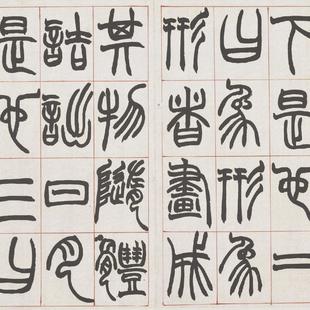 下是也二
曰象形象
形者畫成
其物隨體
詰詘日月
是也三曰